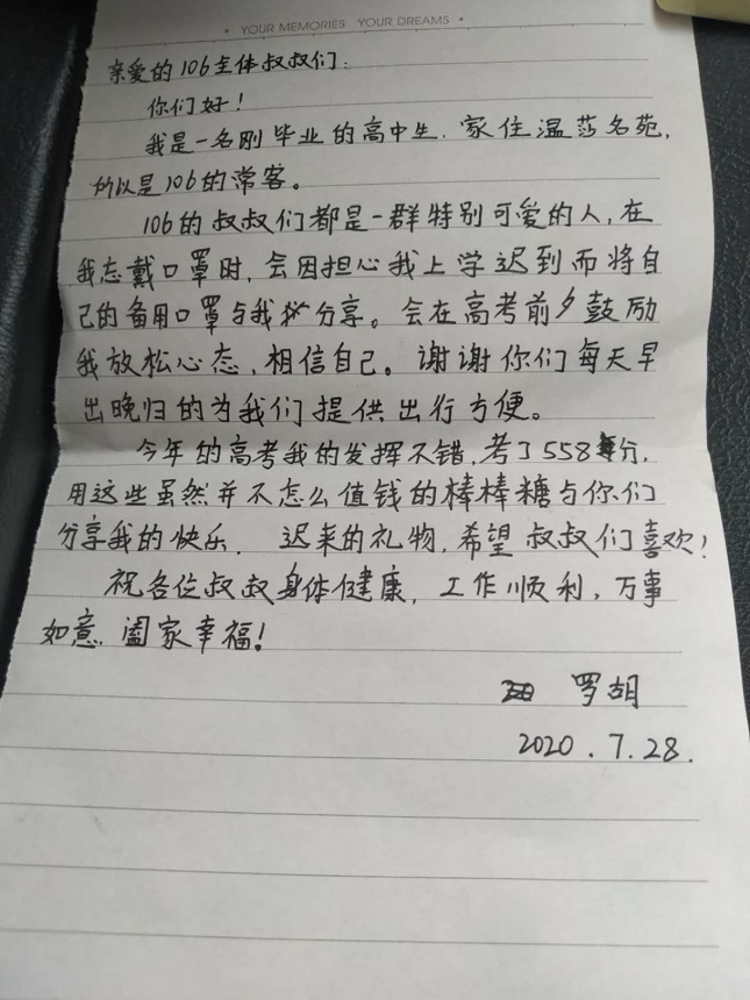 • YOUR MEMORIES YOUR DREAMS •
亲爱的106全体叔叔们:
你们好!
我是一名刚毕业的高中生,家住温莎名苑,
所以是106的常客。
106的叔叔们都是一群特别可爱的人,在
我忘戴口罩时,会因担心我上学迟到而将自
己的备用口罩与我分享。会在高考前夕鼓励
我放松心态,相信自己。谢谢你们每天早
出晚归的为我们提供出行方便。
今年的高考我的发挥不错,考了558分,
用这些虽然并不怎么值钱的棒棒糖与你们
分享我的快乐. 迟来的礼物,希望叔叔们喜欢!
祝各位叔叔身体健康,工作顺利,万事
如意,阖家幸福!
罗胡
2020.7.28.